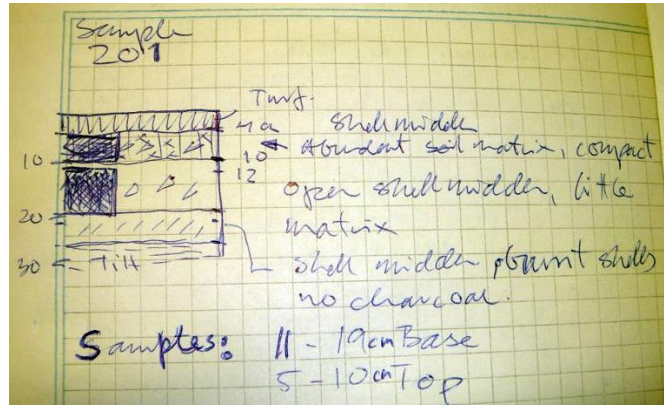 Sample
201
Turf.
4a shell midden
10 10 Abundent soil matrix, compact
12
Open shell midden, little
20 matrix
30 Till shell midden shells
no charcoal.
Samples: 11 - 19cm Base
5 - 10cm Top